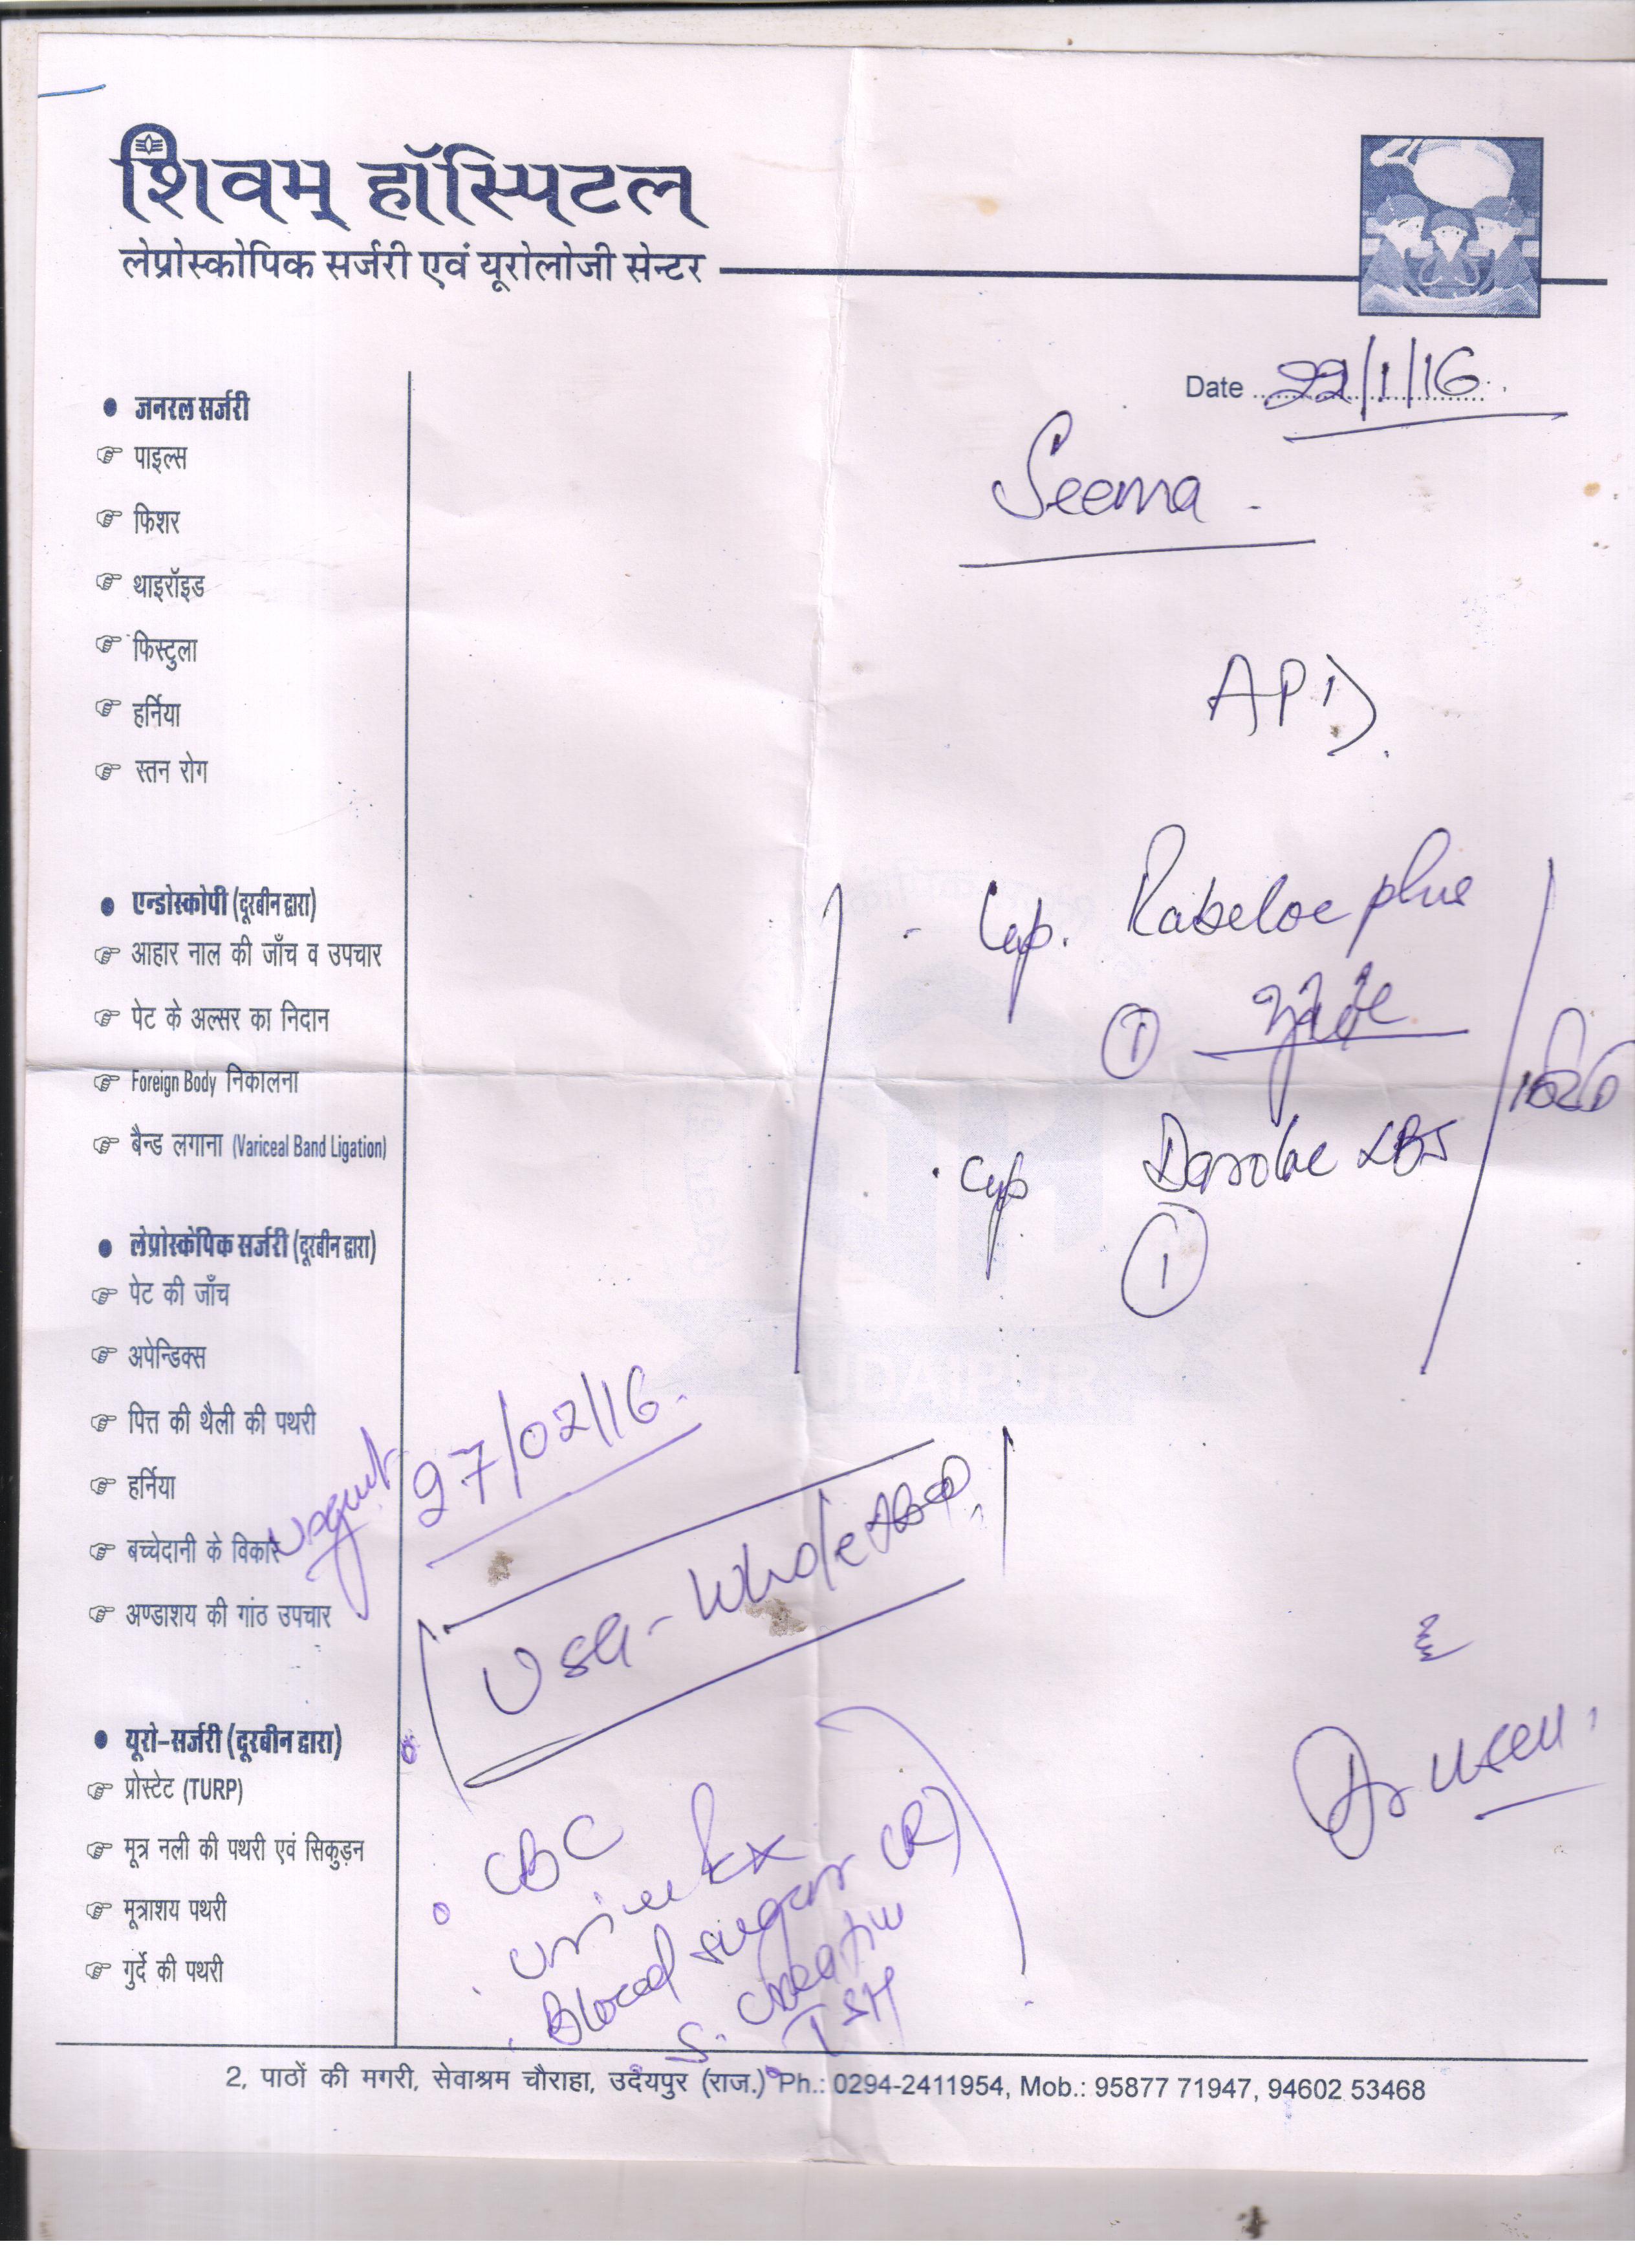 शिवम् हॉस्पिटल
लेप्रोस्कोपिक सर्जरी एवं यूरोलोजी सेन्टर
Date 22/1/16
Seema
APD
Cap. Rabeloc plus
1
Cap
1
• जनरल सर्जरी
पाइल्स
फिशर
थाइरॉइड
फिस्टुला
हर्निया
स्तन रोग
• एन्डोस्कोपी (दूरबीन द्वारा)
आहार नाल की जाँच व उपचार
पेट के अल्सर का निदान
Foreign Body निकालना
बैन्ड लगाना (Variceal Band Ligation)
• लेप्रोस्कोपिक सर्जरी (दूरबीन द्वारा)
पेट की जाँच
अपेन्डिक्स
पित्त की थैली की पथरी
हर्निया
बच्चेदानी के विकार
अण्डाशय की गांठ उपचार
• यूरो-सर्जरी (दूरबीन द्वारा)
प्रोस्टेट (TURP)
मूत्र नली की पथरी एवं सिकुड़न
मूत्राशय पथरी
गुर्दे की पथरी
27/02/16
USG - Whole Abd
CBC
Urine
Blood sugar (R)
S. Creatin
TSH
UDAIPUR
2, पाठों की मगरी, सेवाश्रम चौराहा, उदयपुर (राज.) Ph.: 0294-2411954, Mob.: 95877 71947, 94602 53468